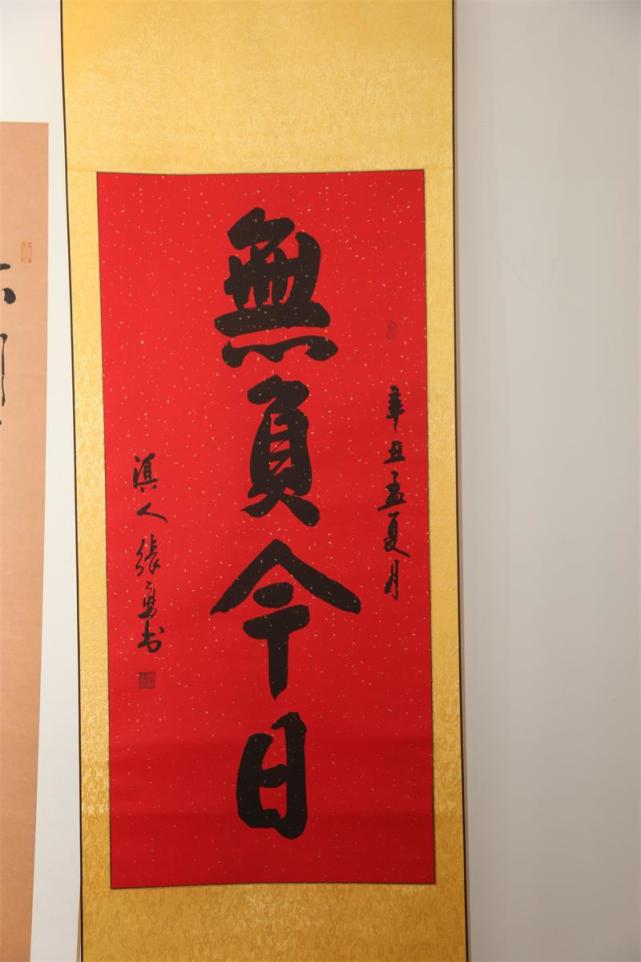 辛丑孟夏月
無負今日
滇人張勇书